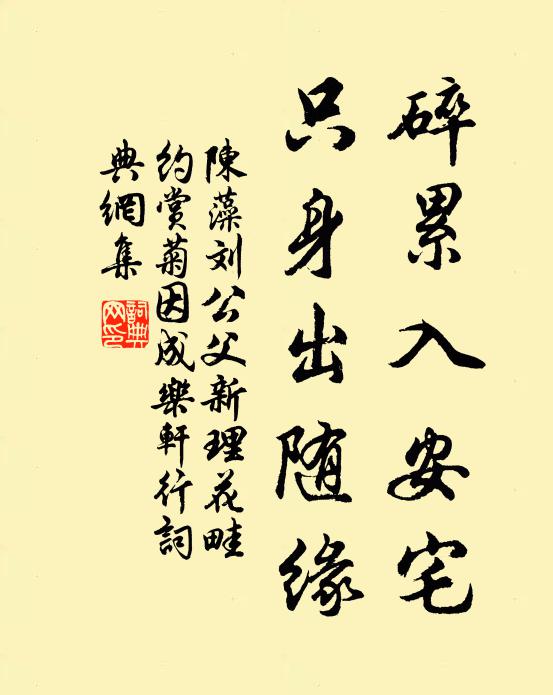 碎累入安宅
只身出随缘
陳藻刘公父新理花畦
约赏菊因成樂軒行詞
典網集
詞典网印